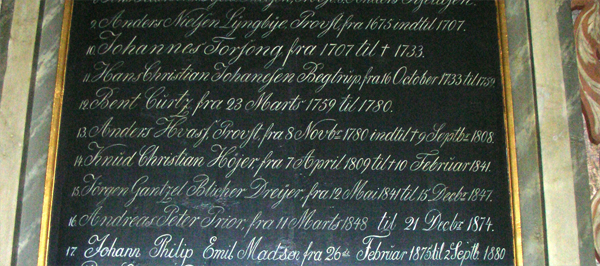 9. Anders Nielsen Lijngbije, Provst, fra 1675 indtil 1707.
10. Johannes Torsong fra 1707 til † 1733.
11. Hans Christian Johansen Begtrup, fra 16 October 1733 til 1759
12. Bent Cürtz, fra 23 Marts 1759 til 1780.
13. Anders Hvass, Provst, fra 8 Novbr 1780 indtil † 9 Septbr 1808.
14. Knud Christian Höjer, fra 7 April 1809 til † 10 Februar 1841.
15. Jörgen Gantzel Blicher Dreijer, fra 12 Mai 1841 til 15 Decbr 1847.
16. Andreas Peter Prior, fra 11 Marts 1848 til 21 Decbr 1874.
17 Johann Philip Emil Madsen fra 26de Februar 1875 til 2 Septbr 1880